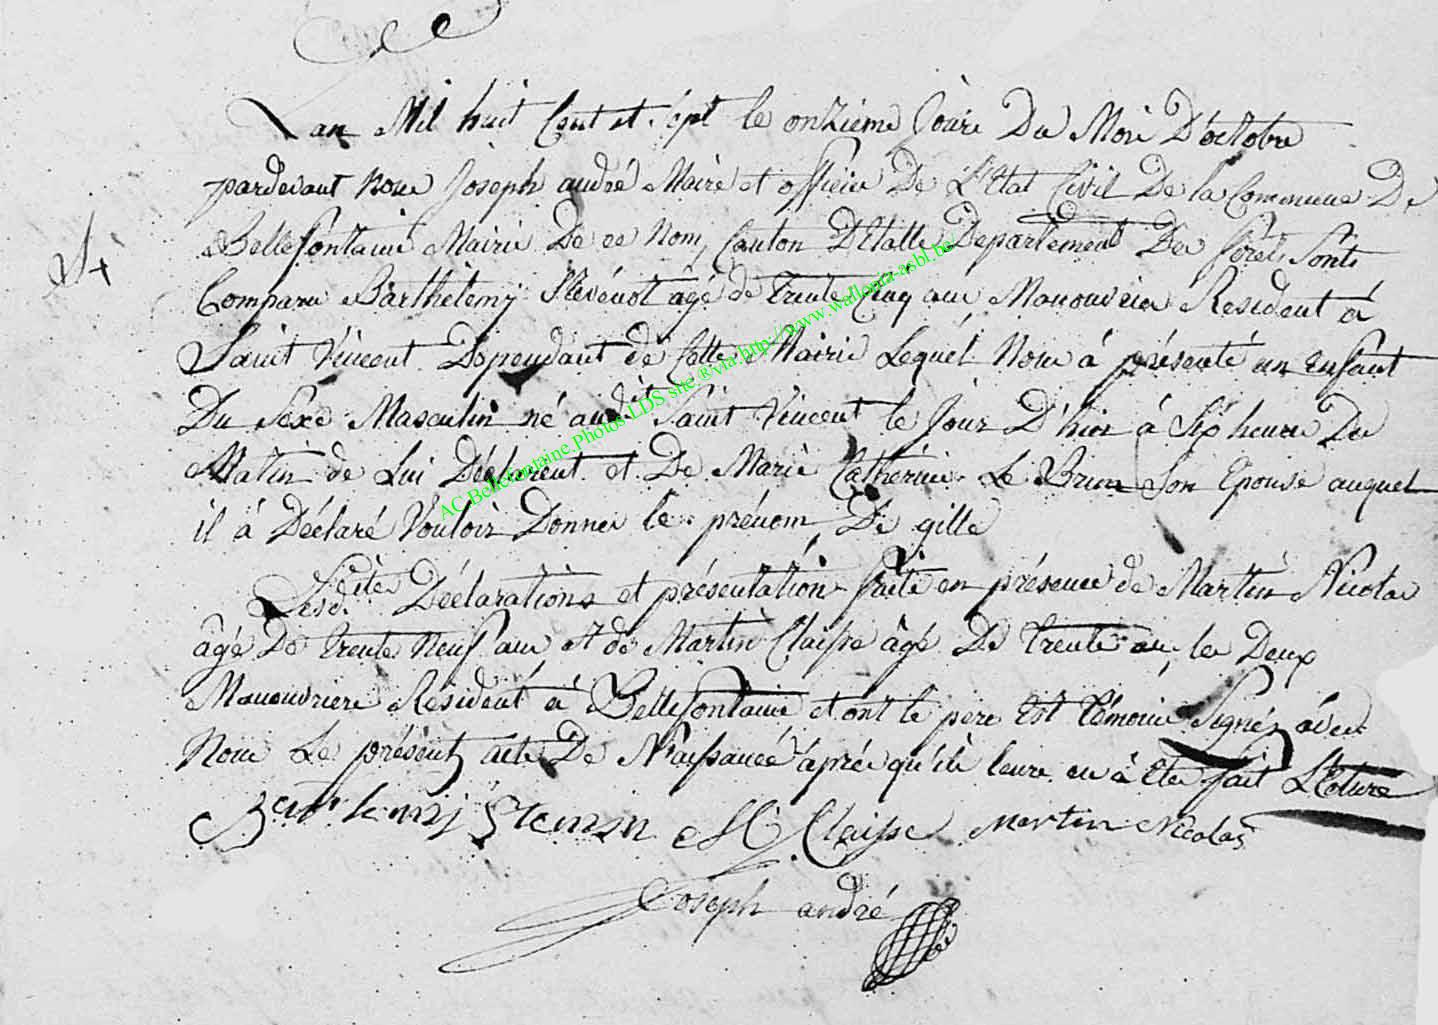 Lan Mil huit Cent et Sept le onzième Jour Du Moi D'octobre
pardevant Nous Joseph andré Maire et officier De L'Etat Civil De la Commune De
Bellefontaine Mairie De ce Nom, Canton D'Etalle Departement Des forets Sont
Comparu Barthelemy agé de trente Cinq ans Manouvrier Resident à
Saint Vincent Dependant de Cette Mairie Lequel Nous à présenté un Enfant
Du Sexe Masculin né audit Saint Vincent le Jour D'hier à Six heures Du
Matin de Lui Déclarent et De Marie Catherine Le Brun Son Epouse auquel
il à Déclaré Vouloir Donner le prénom De gille
Lesdites Déclarations et présentation faite en présence de Martin Nicolas
âgé De trente Neuf ans et de Martin Claisse âgé De trente ans, les Deux
Manouvriers Résident à Bellefontaine et ont le père Et témoins Signés avec
Nous Le présent acte De Naissance après qu'il leure en à Eté fait Lecture
M Claisse Martin Nicolas
Joseph andré
AC.Bellefontaine.Photos LDS site ®via http://www.wallonia-asbl.be